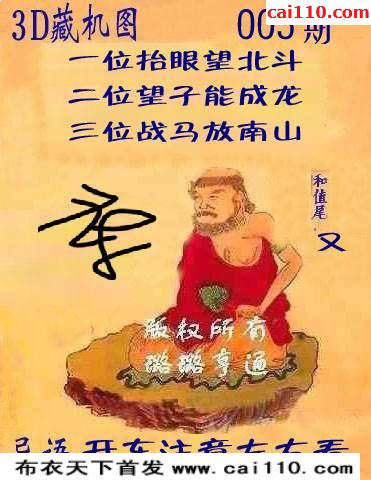 cai110.com
3D藏机图 005期
一位抬眼望北斗
二位望子能成龙
三位战马放南山
和值尾
又
版权所有
璐璐亨通
开车注意左右看
布衣天下首发 www.cai110.com